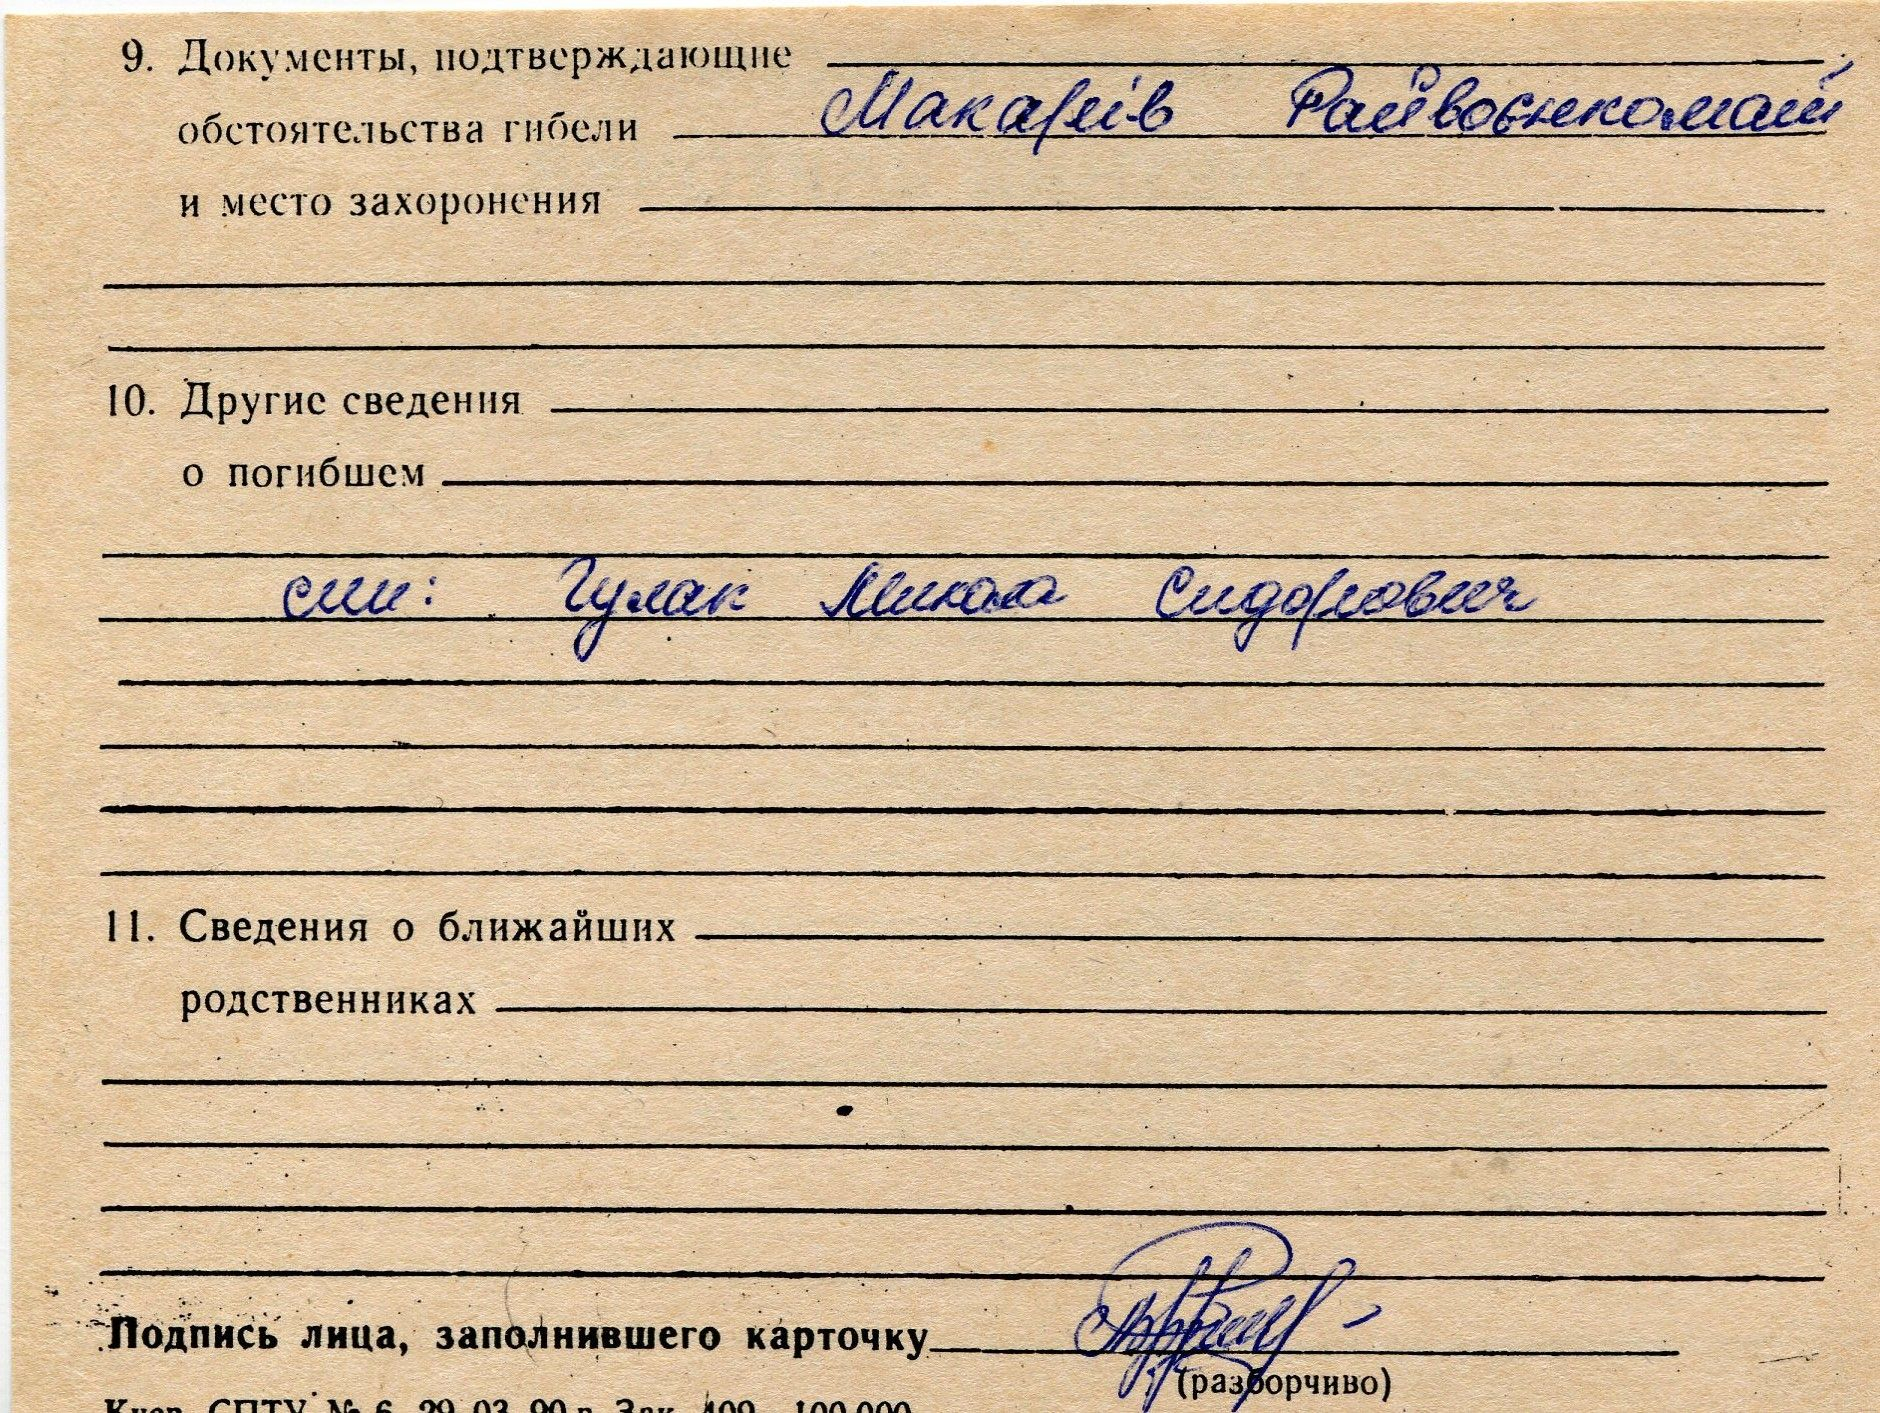 9. Документы, подтверждающие
обстоятельства гибели Макарів Райвоєнкомат
и место захоронения
10. Другие сведения
о погибшем
син: Гулак Микола Сидорович
11. Сведения о ближайших
родственниках
Подпись лица, заполнившего карточку
(разборчиво)
Киев, СПТУ № 6, 29.03.90 г. Зак. 409—100.000